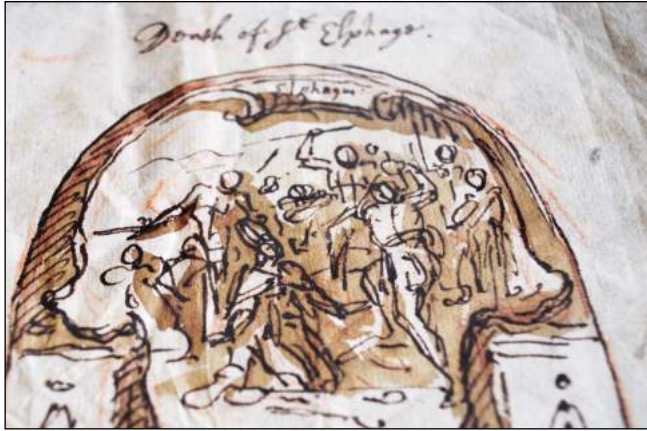 Death of St Elphage.
Elphage